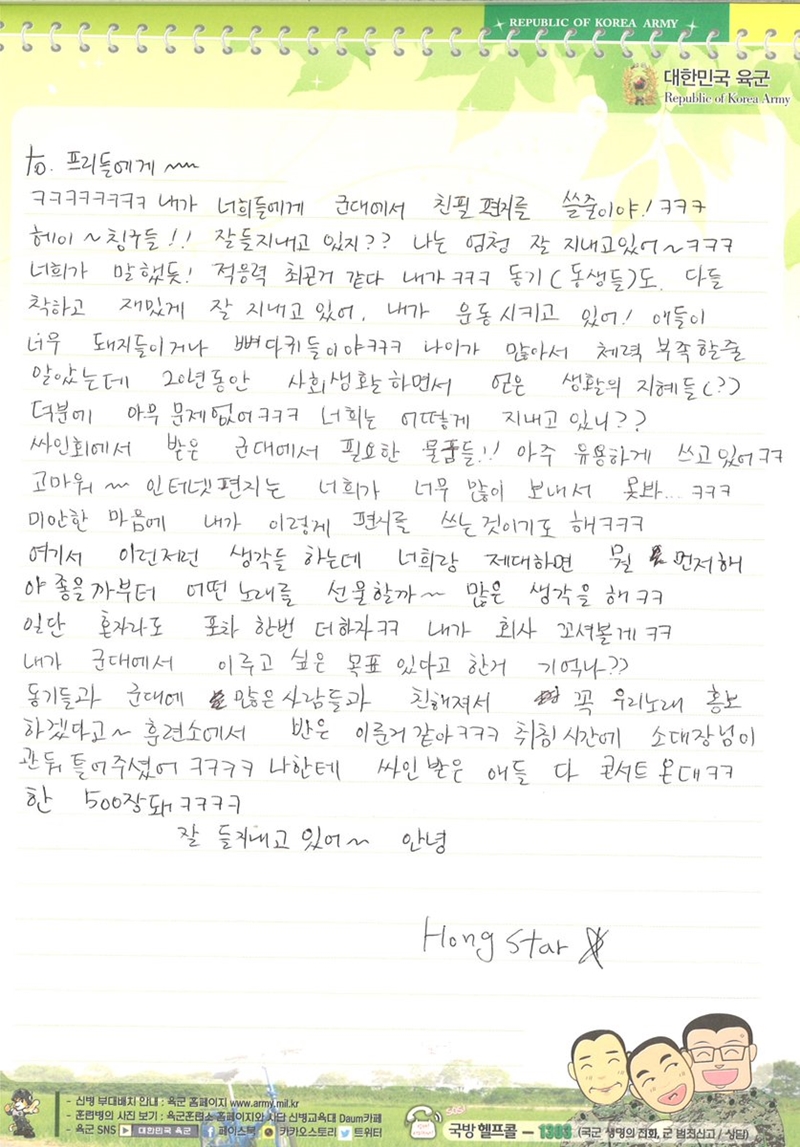 REPUBLIC OF KOREA ARMY
대한민국 육군
Republic of Korea Army
to. 프리들에게 ~~
ㅋㅋㅋㅋㅋㅋㅋㅋ 내가 너희들에게 군대에서 친필 편지를 쓸줄이야! ㅋㅋㅋ
헤이~칭구들!! 잘들지내고 있지?? 나는 엄청 잘 지내고있어~ㅋㅋㅋ
너희가 말했듯! 적응력 최곤거 같다 내가 ㅋㅋㅋ 동기(동생들)도 다들
착하고 재밌게 잘 지내고 있어. 내가 운동시키고 있어! 애들이
너무 돼지들이거나 뼈다귀들이야ㅋㅋㅋ 나이가 많아서 체력 부족할줄
알았는데 20년동안 사회생활하면서 얻은 생활의 지혜들(?)
덕분에 아무 문제없어ㅋㅋㅋ 너희는 어떻게 지내고 있니??
싸인회에서 받은 군대에서 필요한 물품들!! 아주 유용하게 쓰고있어ㅋㅋ
고마워~ 인터넷편지는 너희가 너무 많이 보내서 못봐... ㅋㅋㅋ
미안한 마음에 내가 이렇게 편지를 쓰는것이기도 해ㅋㅋㅋ
여기서 이런저런 생각들 하는데 너희랑 제대하면 뭘 먼저해
야 좋을까부터 어떤노래를 선물할까~ 많은 생각을 해ㅋㅋ
일단 혼자라도 포차 한번 더하자ㅋㅋ 내가 회사 꼬셔볼게ㅋㅋ
내가 군대에서 이루고 싶은 목표 있다고 한거 기억나??
동기들과 군대에 많은사람들과 친해져서 꼭 우리노래 홍보
하겠다고~ 훈련소에서 반은 이룬거같아ㅋㅋㅋ 취침시간에 소대장님이
관둬 틀어주셨어 ㅋㅋㅋㅋ 나한테 싸인받은 애들 다 콘서트온대ㅋㅋ
한 500장돼ㅋㅋㅋㅋ
잘 들지내고 있어~ 안녕
Hong Star
- 신병 부대배치 안내 : 육군 홈페이지 www.army.mil.kr
- 훈련병의 사진 보기 : 육군훈련소 홈페이지와 사단 신병교육대 Daum카페
- 육군 SNS 대한민국 육군 페이스북 카카오스토리 트위터
SOS
국방헬프콜 - 1303 (국군 생명의 전화, 군 범죄신고 / 상담)